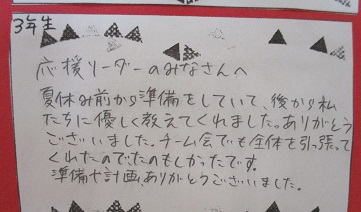 3年生
応援リーダーのみなさんへ
夏休み前から準備をしていて、後から私
たちに優しく教えてくれました。ありがとう
ございました。チーム会でも全体を引っ張って
くれたのでたのもしかったです。
準備や計画、ありがとうございました。